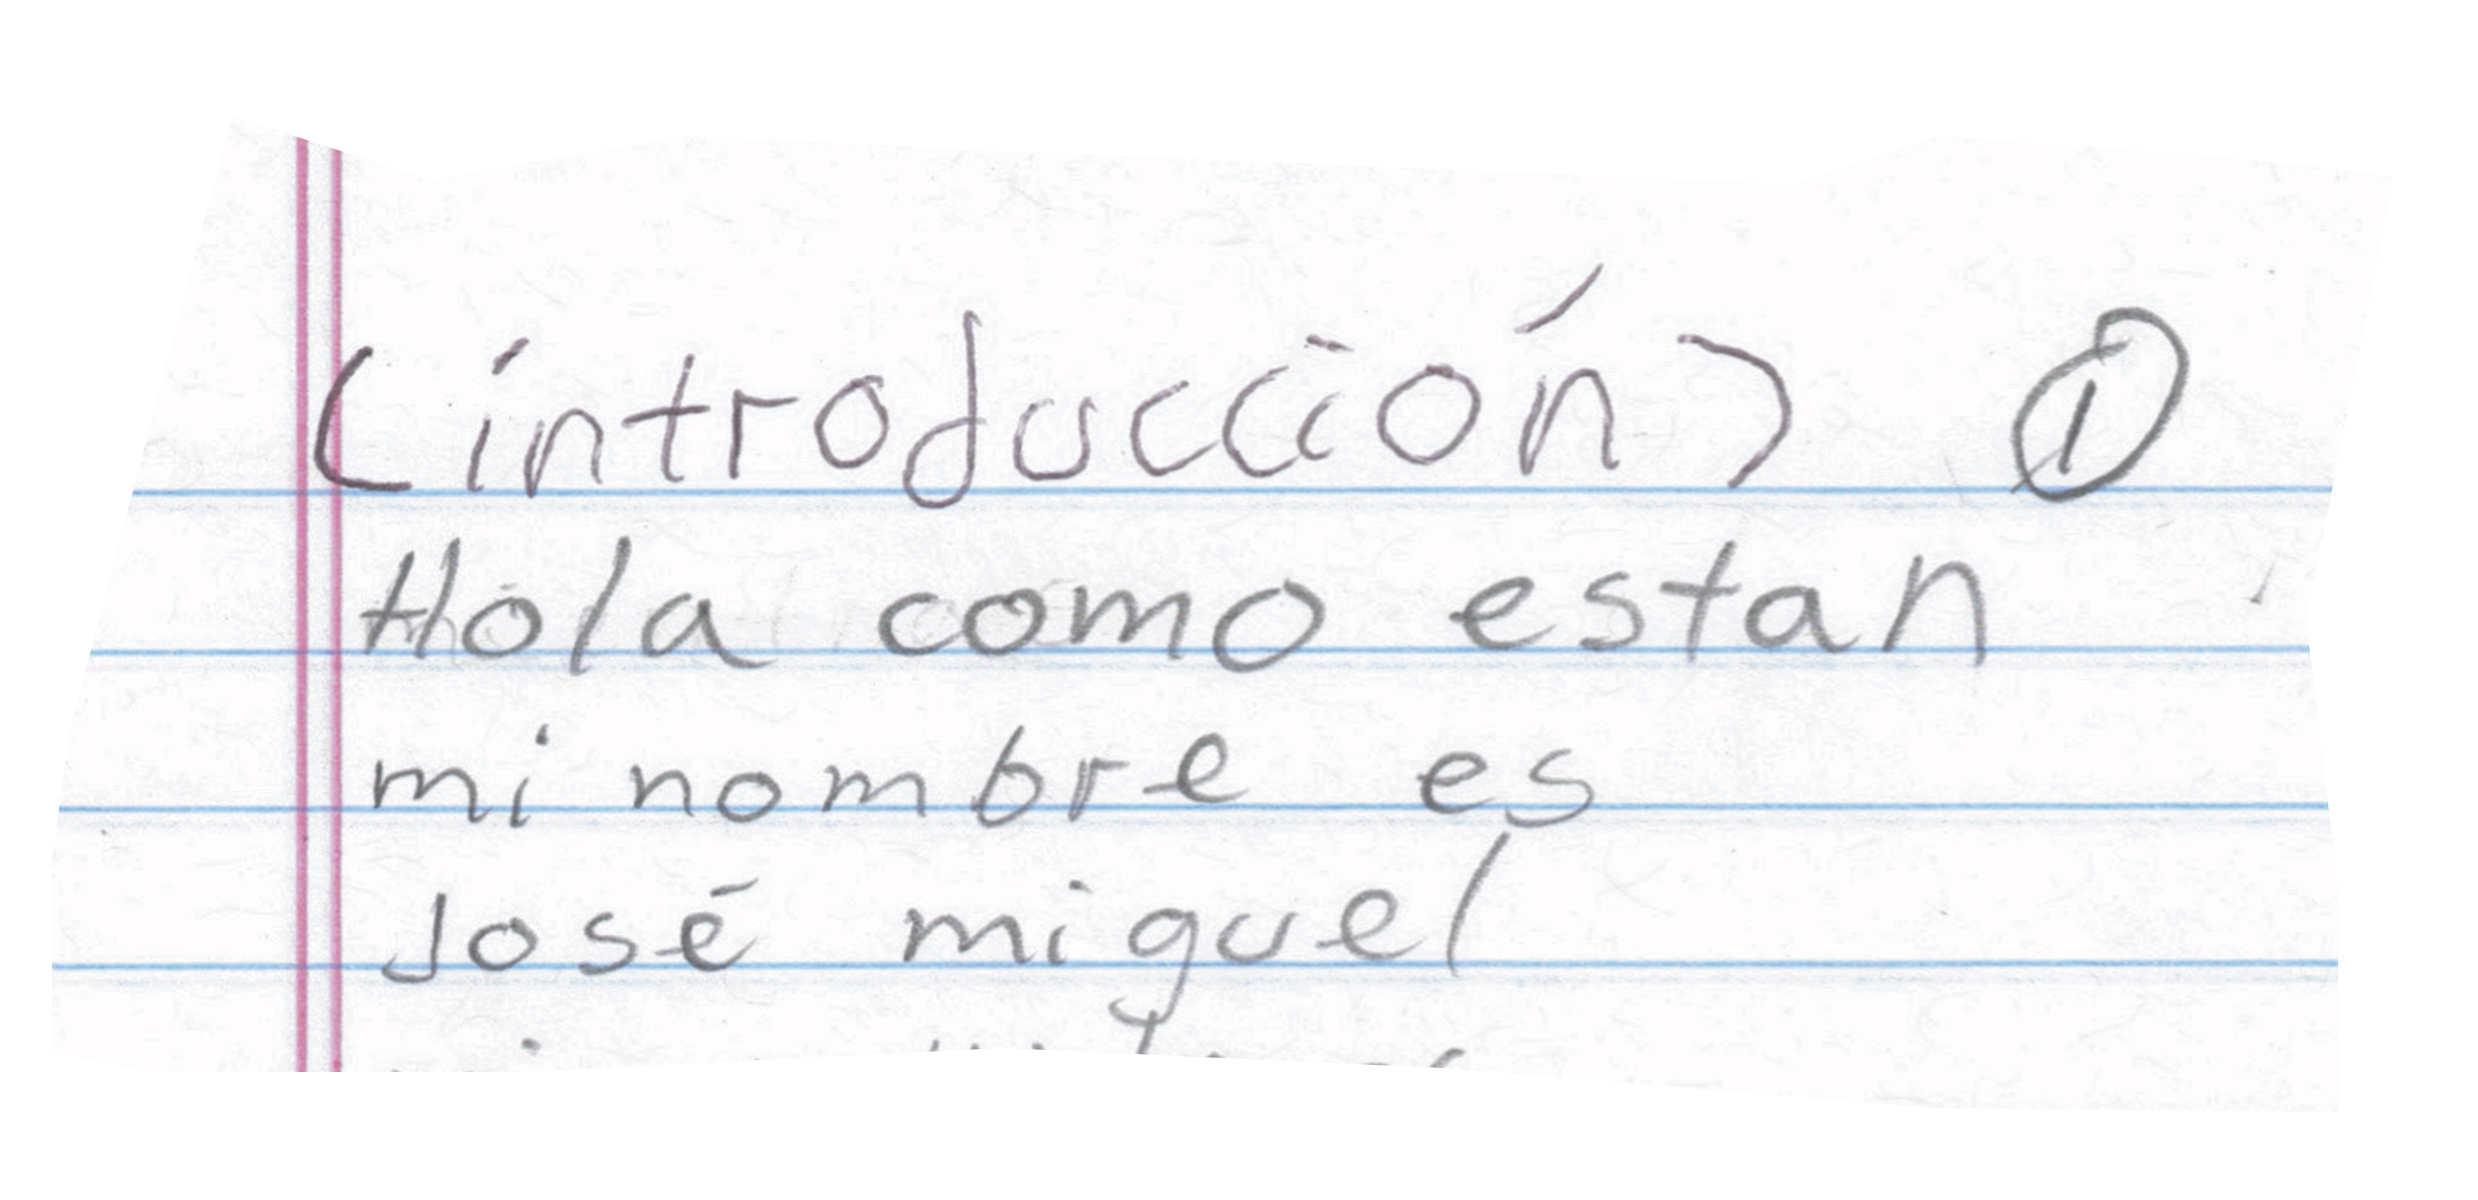 (introducción) ①
Hola como estan
mi nombre es
José miguel